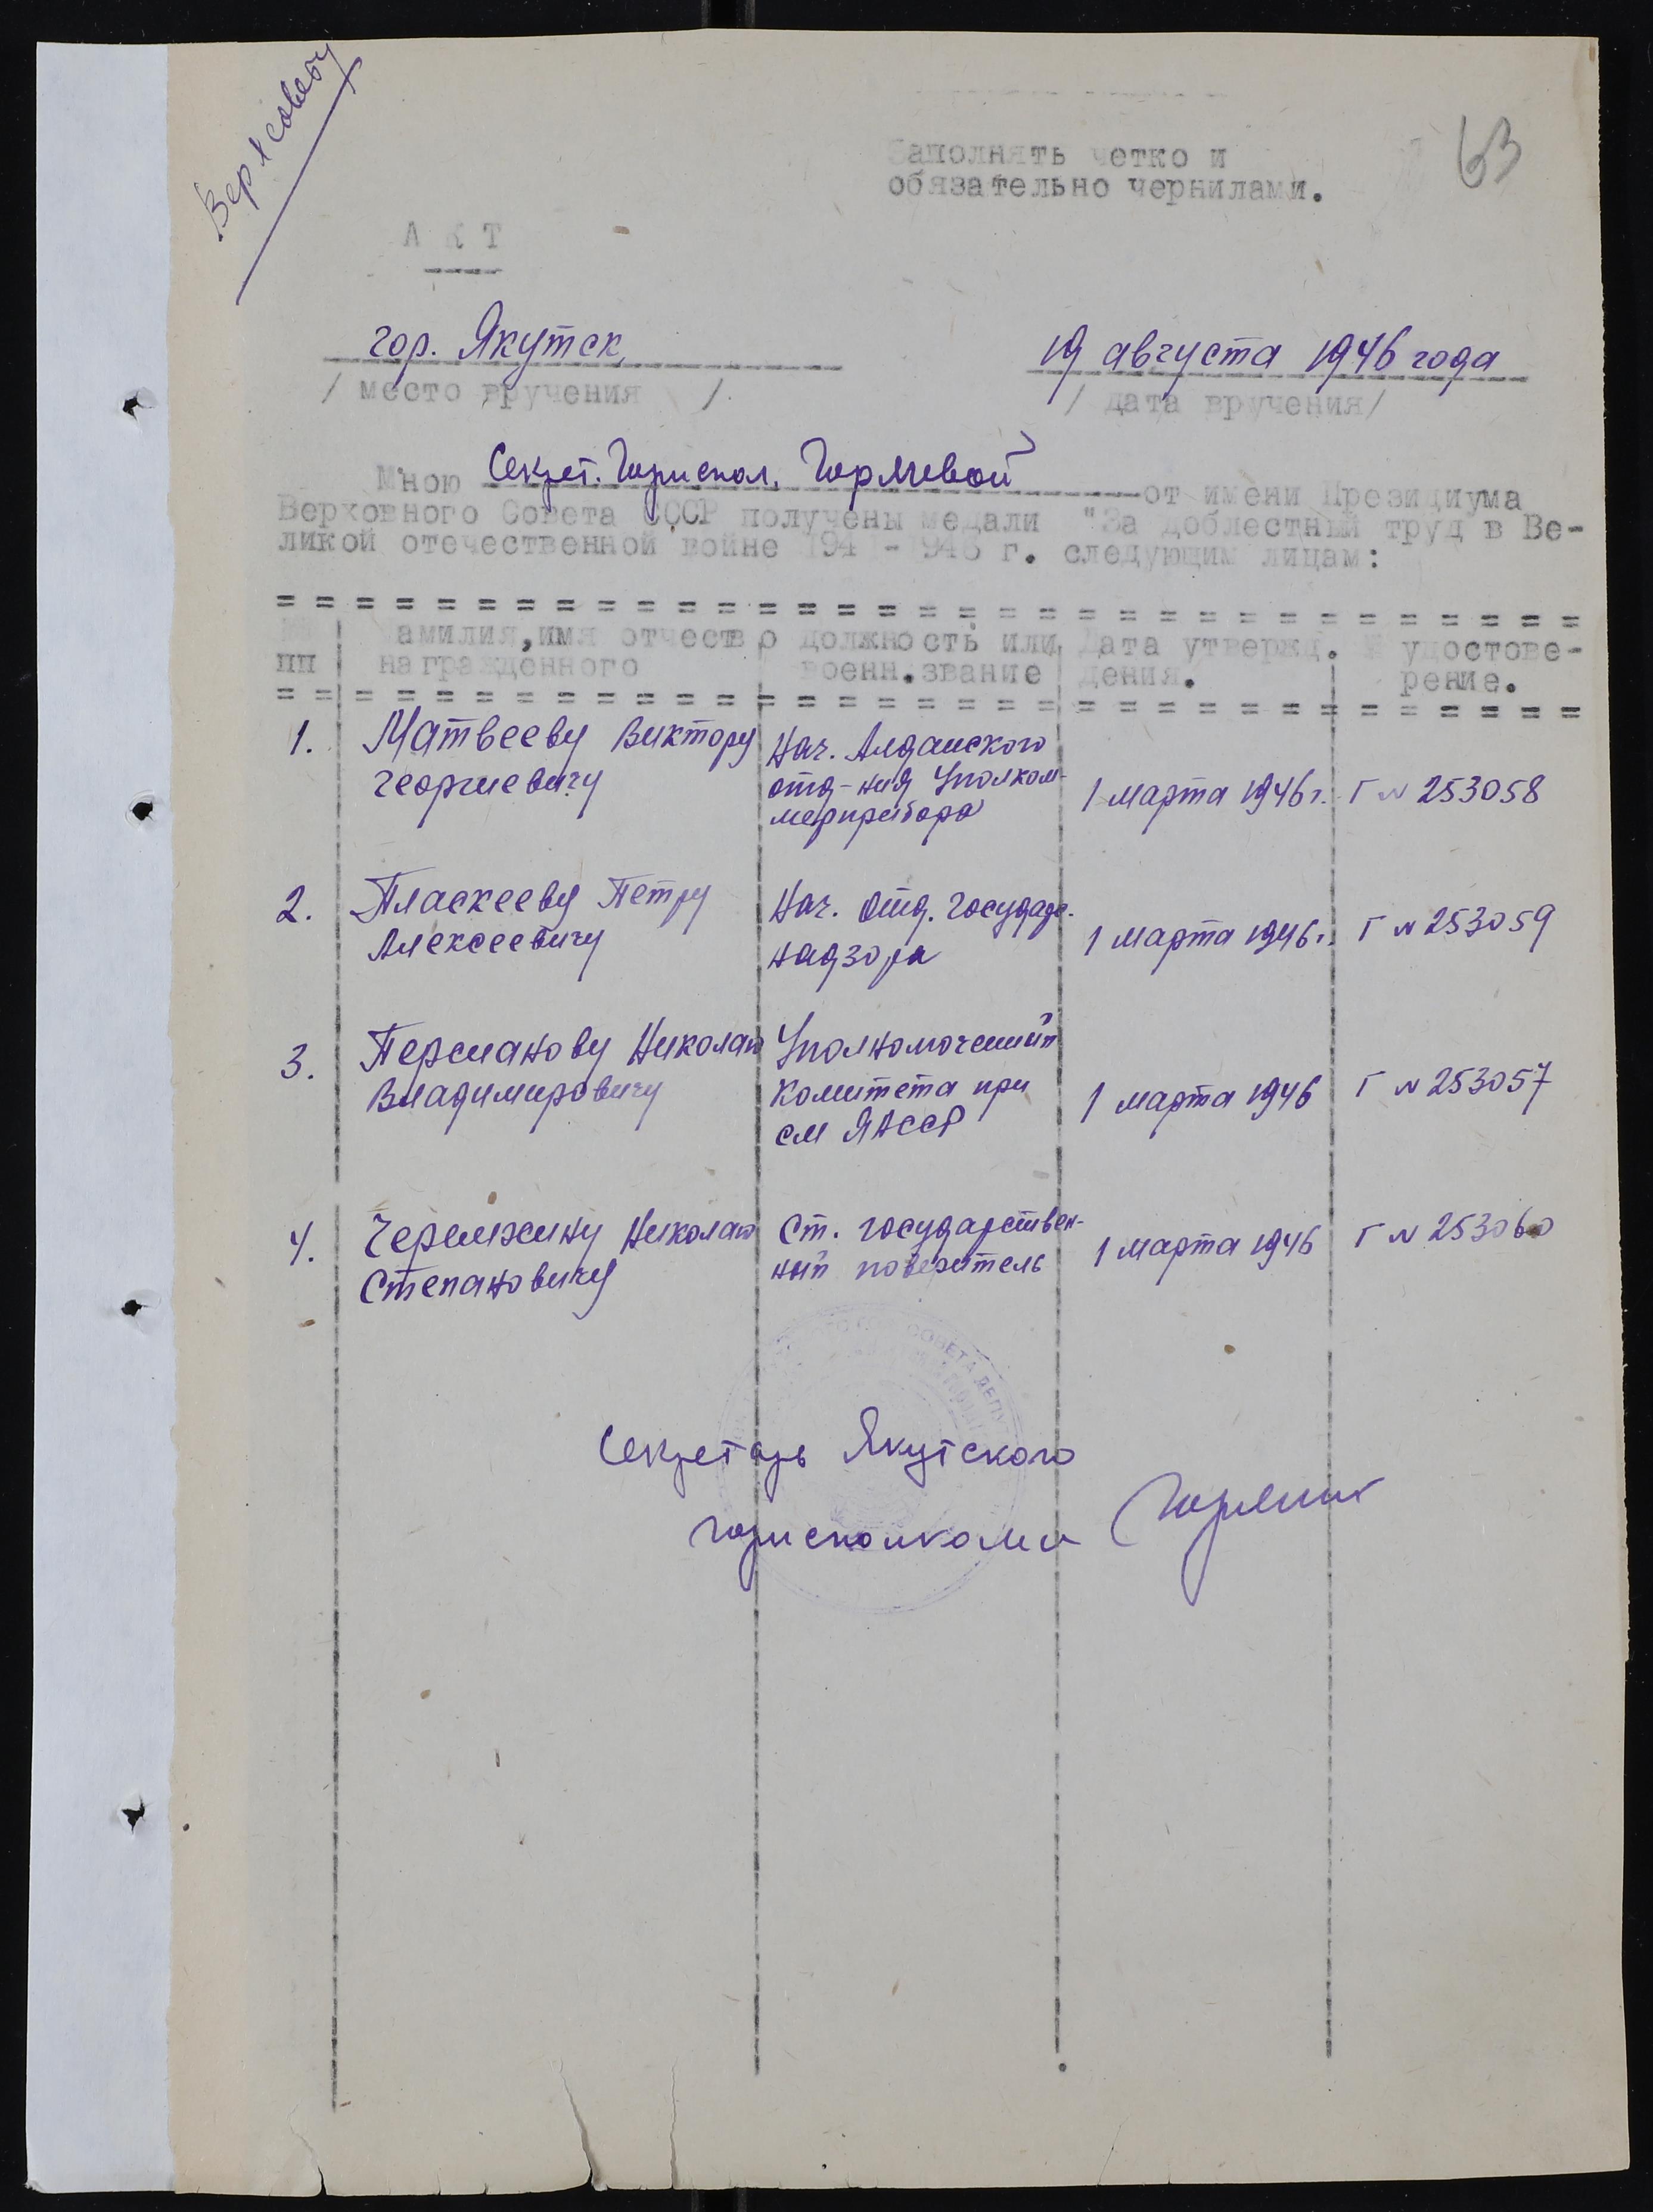 Верхсовету
63
Заполнять четко и
обязательно чернилами.
А К Т
гор. Якутск
19 августа 1946 года
/ место вручения /.
/ дата вручения/
Мною Секрет. Горисполк. от имени Президиума
Верховного Совета СССР получены медали "За доблестный труд в Ве-
ликой отечественной войне 1941-1945 г. следующим лицам:
амилия, имя отчество должность или Дата утвержд. № удостове-
пп награжденного военн. звание дения. рение.
1. Матвееву Виктору Нач. Алданского
Георгиевичу отд-ния Уполком- 1 марта 1946 г. Г № 253058
мерприбора
2. Пласкееву Петру Нач. Отд. Государ.
Алексеевичу надзора 1 марта 1946 г. Г № 253059
3. Пермянову Николаю Уполномоченный
Владимировичу Комитета при 1 марта 1946 Г № 253057
СМ ЯАССР
4. Черемжину Николаю Ст. государствен- 1 марта 1946 Г № 253060
Степановичу ный поверитель
СОВЕТА ДЕПУ
Секретарь Якутского
горисполкома